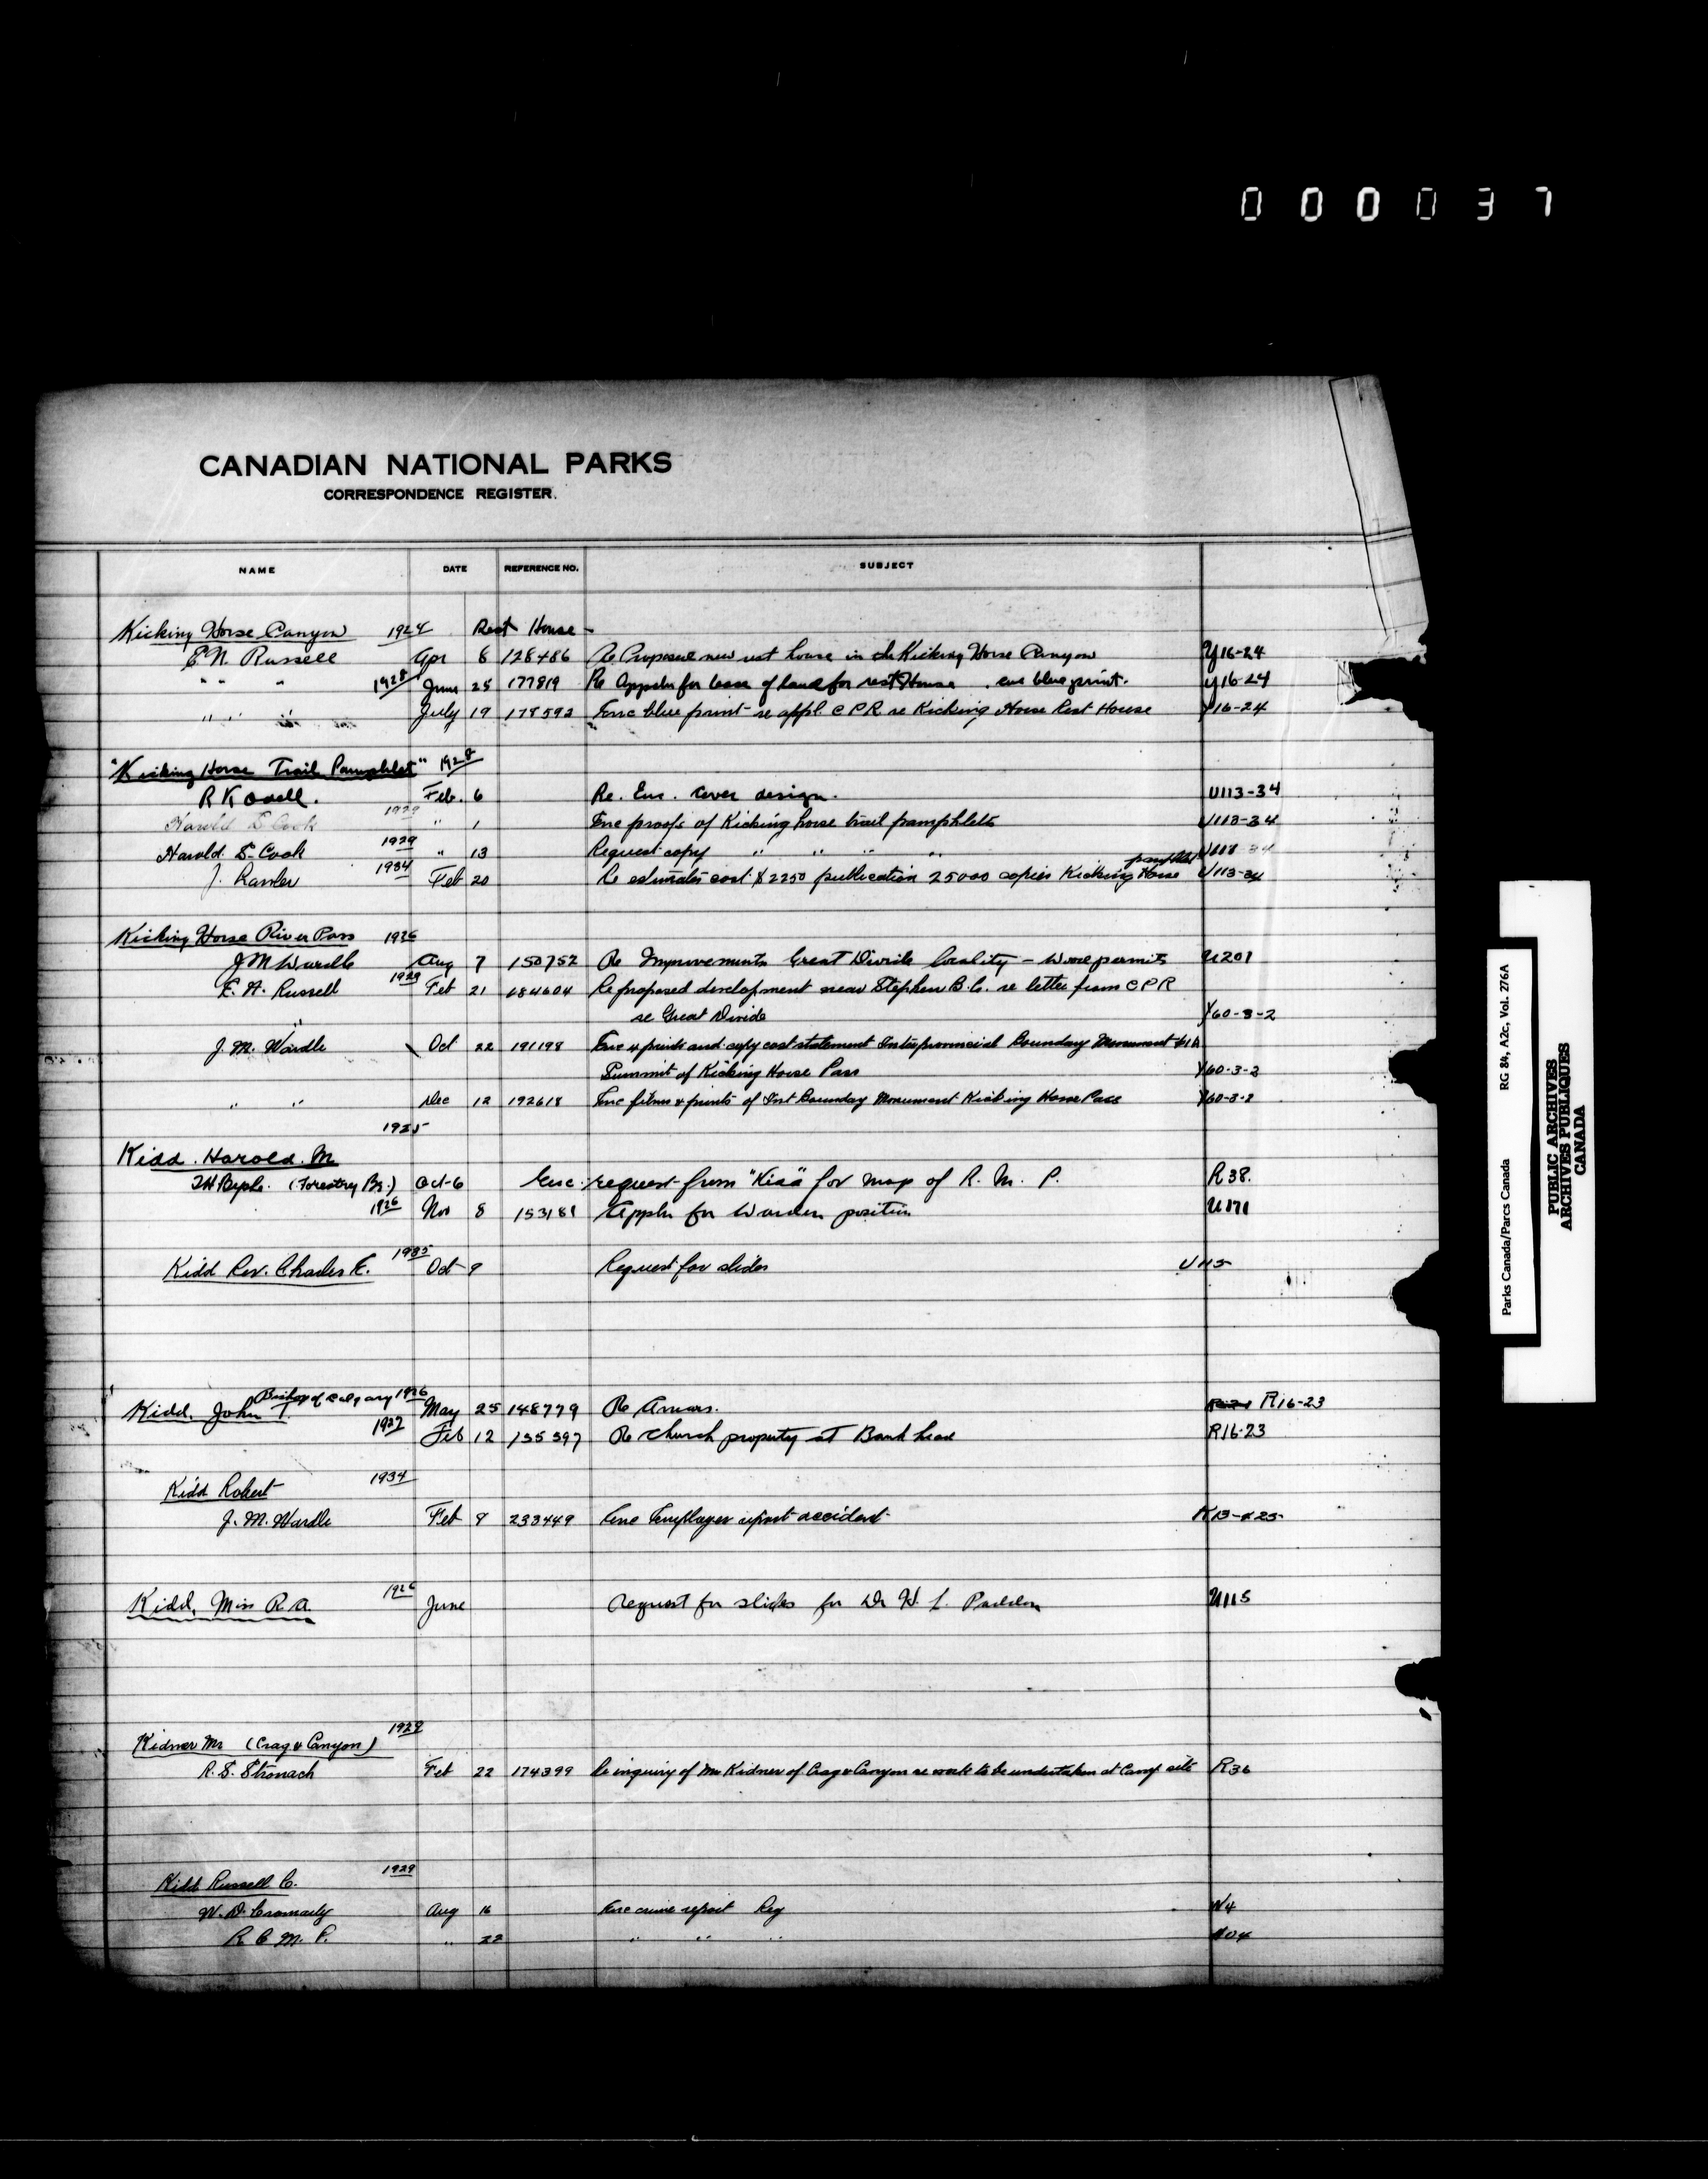 0 0 0 0 3 7
CANADIAN NATIONAL PARKS
CORRESPONDENCE REGISTER.
NAME DATE REFERENCE NO. SUBJECT
Kicking Horse Canyon 1924 Rest House -
E N. Russell Apr 8 128486 Re Proposed new rest house in the Kicking Horse Canyon Y16-24
" " " 1928 June 25 177819 Re Appln for lease of land for rest House. enc blue print. Y16-24
" " " July 19 178592 Enc blue print re appl. C P R re Kicking Horse Rest House Y16-24
"Kicking Horse Trail Pamphlet" 1928
R K Odell. Feb. 6 Re. Enc. cover design. U113-34
Harold S Cook 1929 " 1 Enc proofs of Kicking horse trail pamphlets U113-34
Harold S. Cook 1929 " 13 Request copy " " " " U113-34
J. 1934 Feb 20 Re estimates cost $2250 publication 25000 copies Kicking Horse pamphlet U113-34
Kicking Horse River Pass 1926
J M Wardle Aug 7 150752 Re Improvements Great Divide locality - wood permits U201
E. A. Russell 1929 Feb 21 184604 Re proposed development near Stephen B.C. re letter from C P R
re Great Divide Y60-3-2
J. M. Wardle " Oct 22 191198 Enc 4 prints and copy cost statement Interprovincial Boundary Monument
Summit of Kicking Horse Pass Y60-3-2
" " Dec 12 192618 Enc films & prints of Int Boundary Monument Kicking Horse Pass Y60-3-2
1925
Kidd. Harold. M
(Forestry Br.) Oct-6 Enc. request from "Kidd" for map of R. M. P. R38.
1926 Nov 8 153181 Appln for Warden position U171
Kidd Rev. Charles E. 1935 Oct 9 Request for slides U115
Kidd, John T. Bishop of Calgary 1926 May 25 148779 Re R16-23
1927 Feb 12 155397 Re Church property at Bankhead R16-23
Kidd Robert 1934
J. M. Wardle Feb 9 233449 Enc Employer report accident K13-#25
Kidd, Miss R. A. 1926 June request for slides for Dr H. L. Paddon U115
Kidner Mr (Crag & Canyon) 1928
R. S. Stronach Feb 22 174399 Re inquiry of Mr Kidner of Crag & Canyon re work to be undertaken at Camp site R36
Kidd Russell C. 1929
W. D. Cromarty Aug 16 Enc crime report Reg W4
R C M. P. " 22 " " "
Parks Canada/Parcs Canada RG 84, A2c, Vol. 276A
PUBLIC ARCHIVES
ARCHIVES PUBLIQUES
CANADA